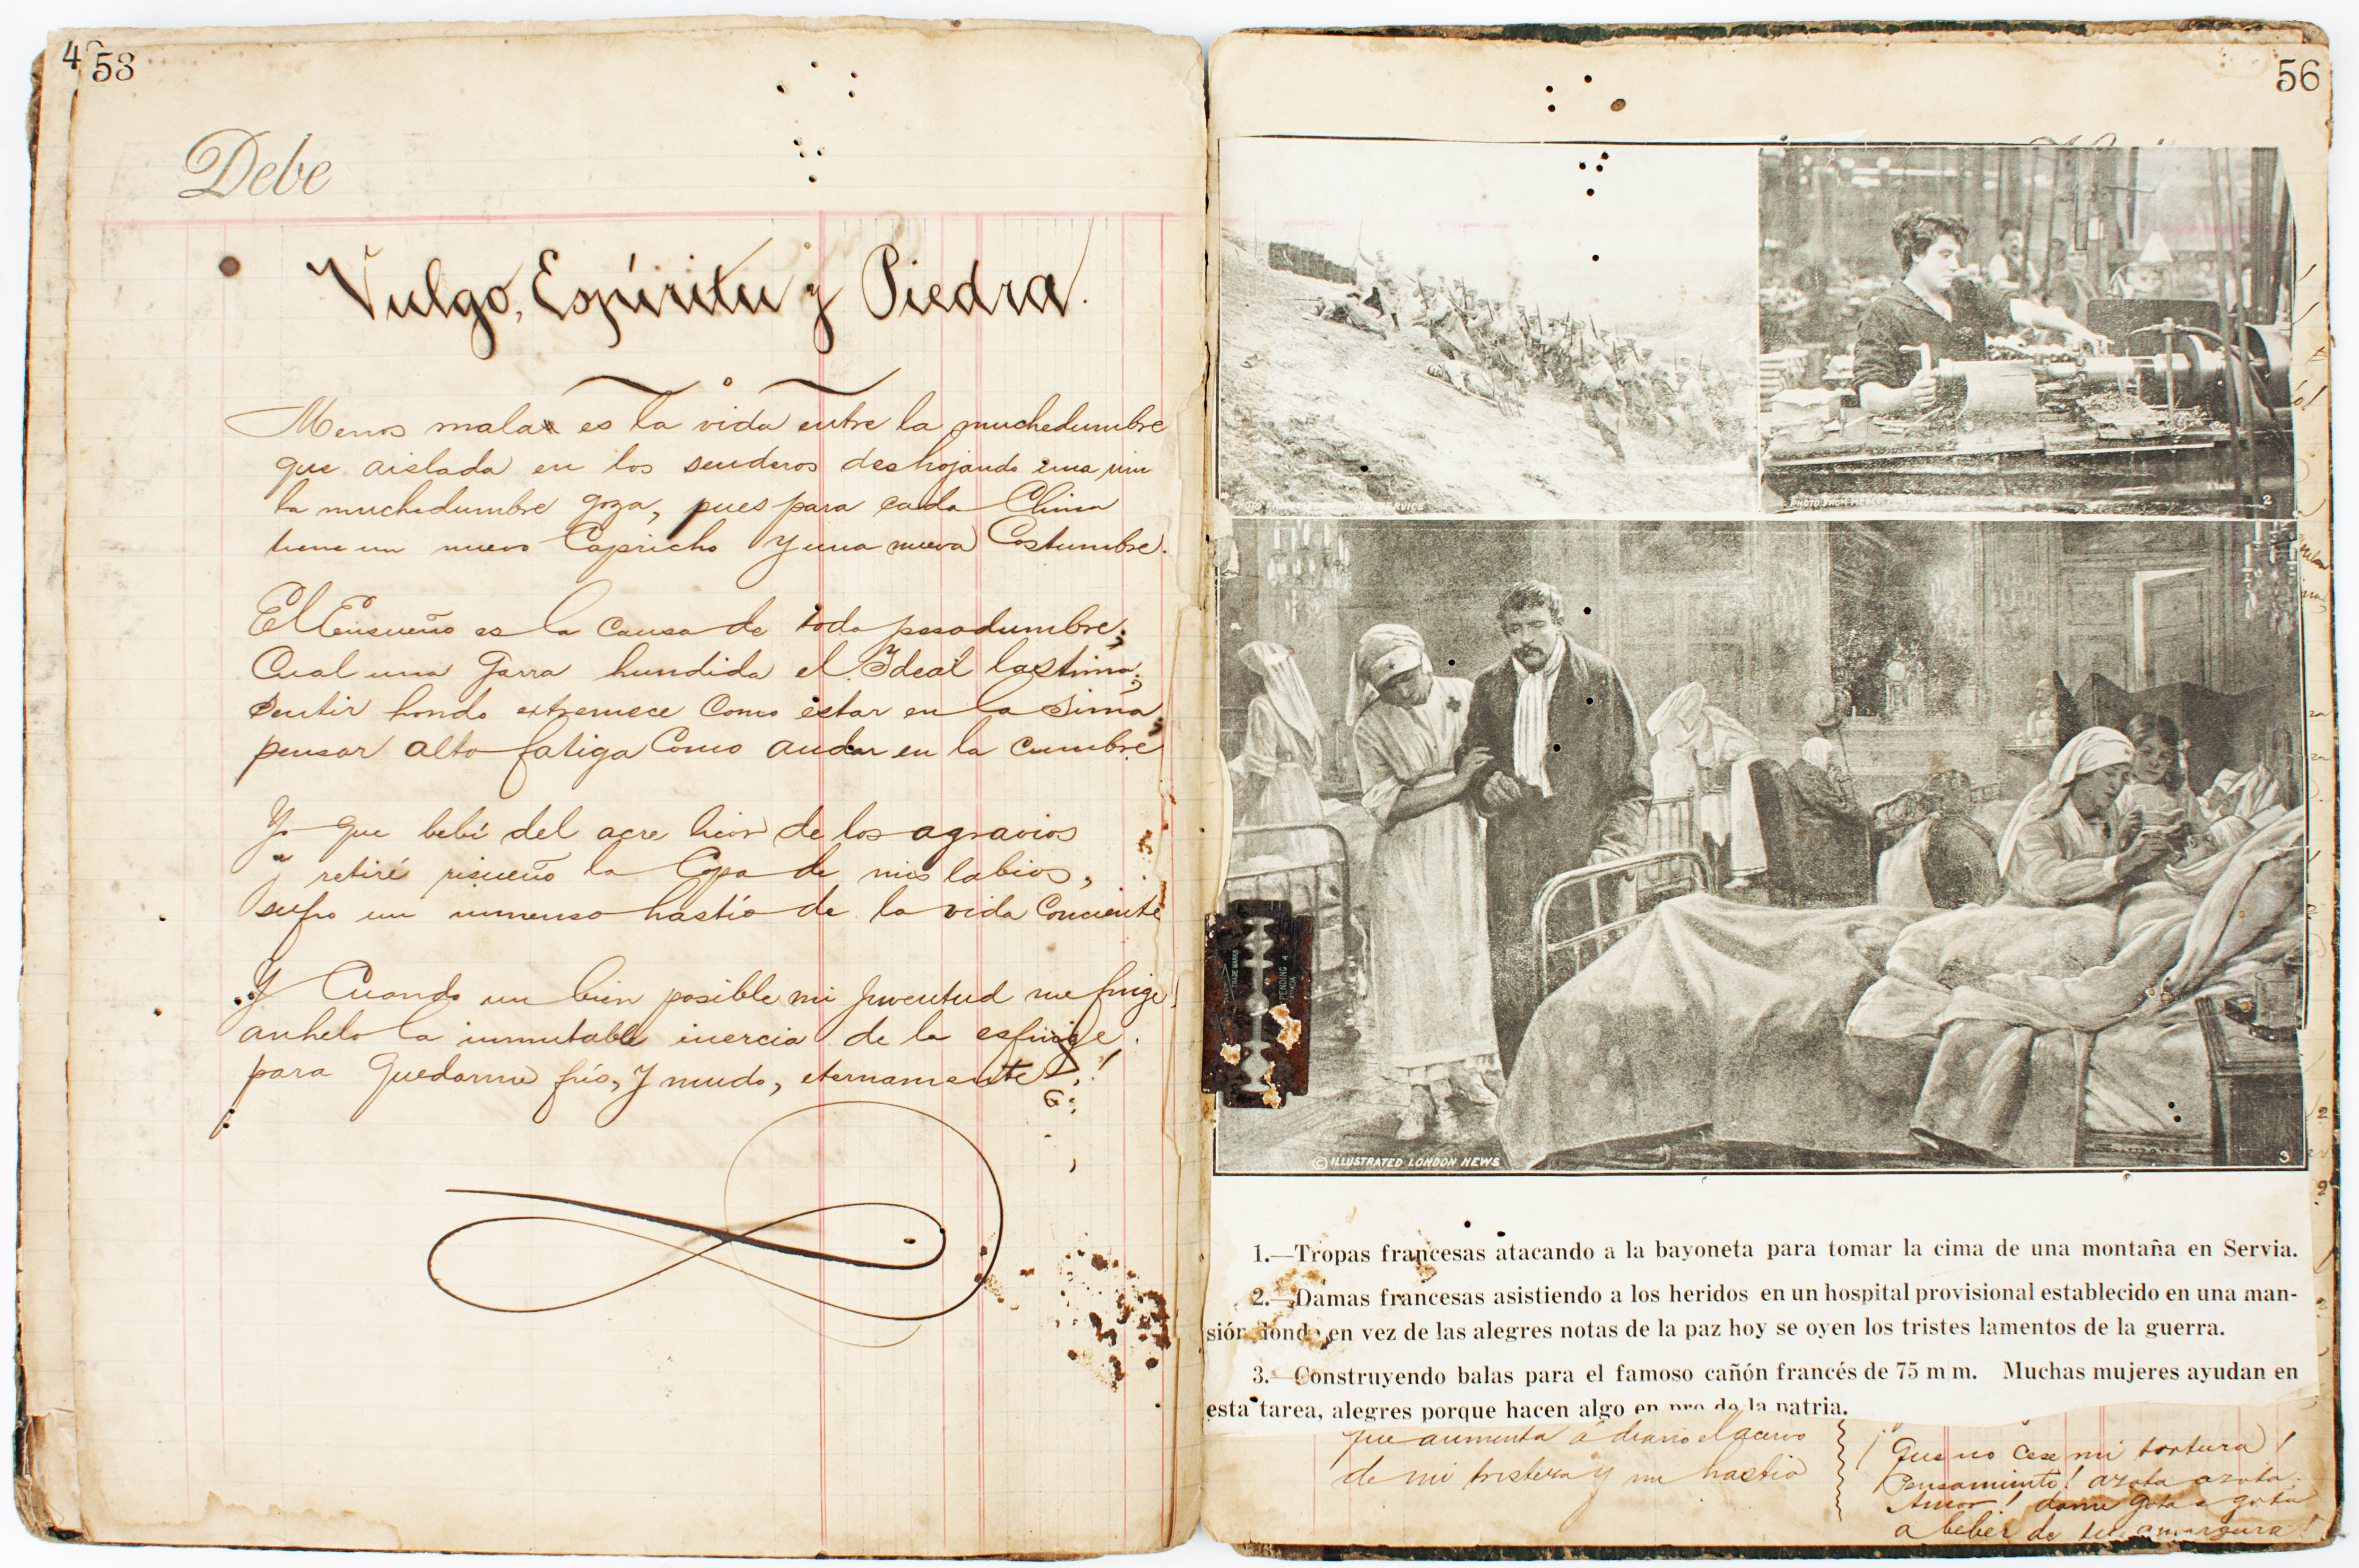 4
53
Debe
Vulgo, Espíritu y Piedra.
Menos mala es la vida entre la muchedumbre
que aislada en los senderos deshojando una rim
la muchedumbre goza, pues para cada Clima
tiene un nuevo Capricho y una nueva Costumbre.
El Ensueño es la causa de toda pesadumbre;
Cual una Garra hundida el Ideal lastima;
Sentir hondo extremece Como estar en la Sima,
pensar alto fatiga Como andar en la cumbre
Yo que bebí del acre licor de los agravios
y retiré risueño la Copa de mis labios,
sufro un inmenso hastío de la vida Conciente
Y Cuando un bien posible mi juventud me finge,
anhelo la inmutable inercia de la esfinge.
para quedarme frío, y mudo, eternamente!
56
SERVICE
PHOTO FROM
2
© ILLUSTRATED LONDON NEWS
3
TRADE MARK
PENDING
1.—Tropas francesas atacando a la bayoneta para tomar la cima de una montaña en Servia.
2.—Damas francesas asistiendo a los heridos en un hospital provisional establecido en una man-
sión donde en vez de las alegres notas de la paz hoy se oyen los tristes lamentos de la guerra.
3.—Construyendo balas para el famoso cañón francés de 75 m|m. Muchas mujeres ayudan en
esta tarea, alegres porque hacen algo en pro de la patria.
que aumenta á diario el acervo
de mi tristeza y mi hastio
¡Que no Cese mi tortura!
Pensamiento! azota azota.
Amor! dame gota a gota
a beber de tu amargura!